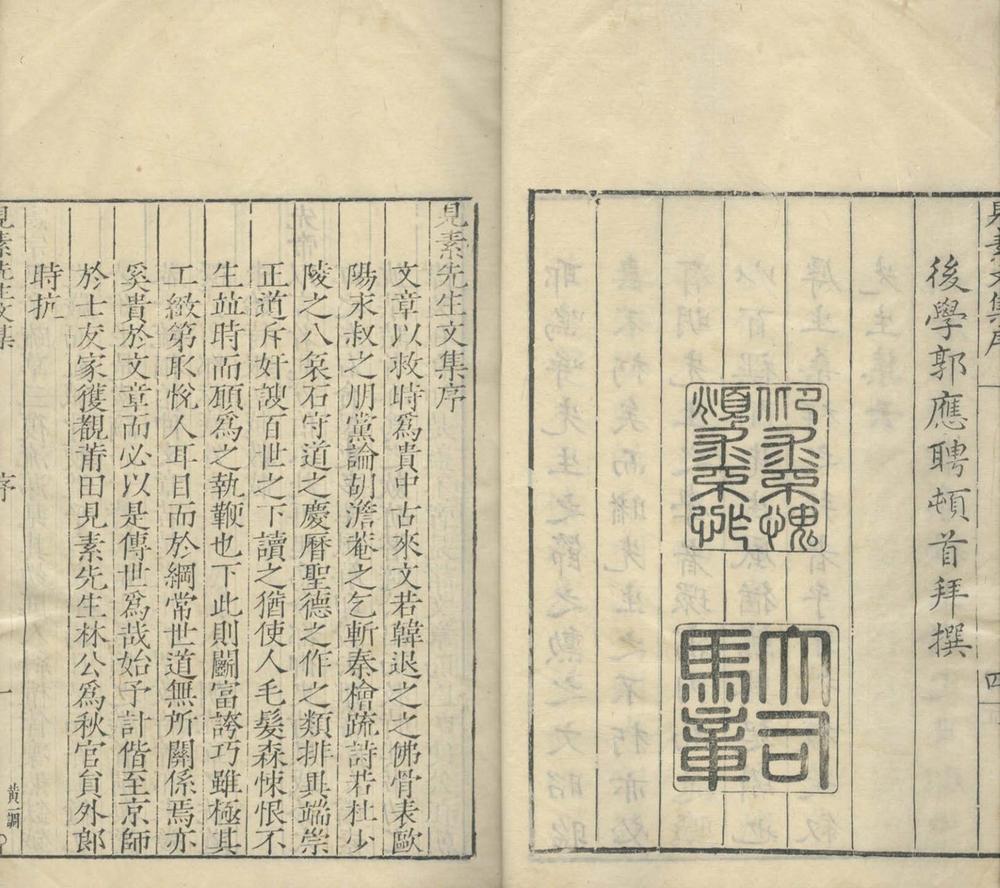 見素文集序
四
後學郭應聘頓首拜撰
大司馬章
見素先生文集序
文章以救時為貴中古來文若韓退之之佛骨表歐
陽永叔之朋黨論胡澹菴之乞斬秦檜疏詩若杜少
陵之八哀石守道之慶曆聖德之作之類排異端崇
正道斥奸諛百世之下讀之猶使人毛髮森悚恨不
生並時而願為之執鞭也下此則鬬富誇巧雖極其
工緻第取悅人耳目而於綱常世道無所關係焉亦
奚貴於文章而必以是傳世為哉始予計偕至京師
於士友家獲觀莆田見素先生林公為秋官員外郎
時抗
見素先生文集
序
一
黃一調